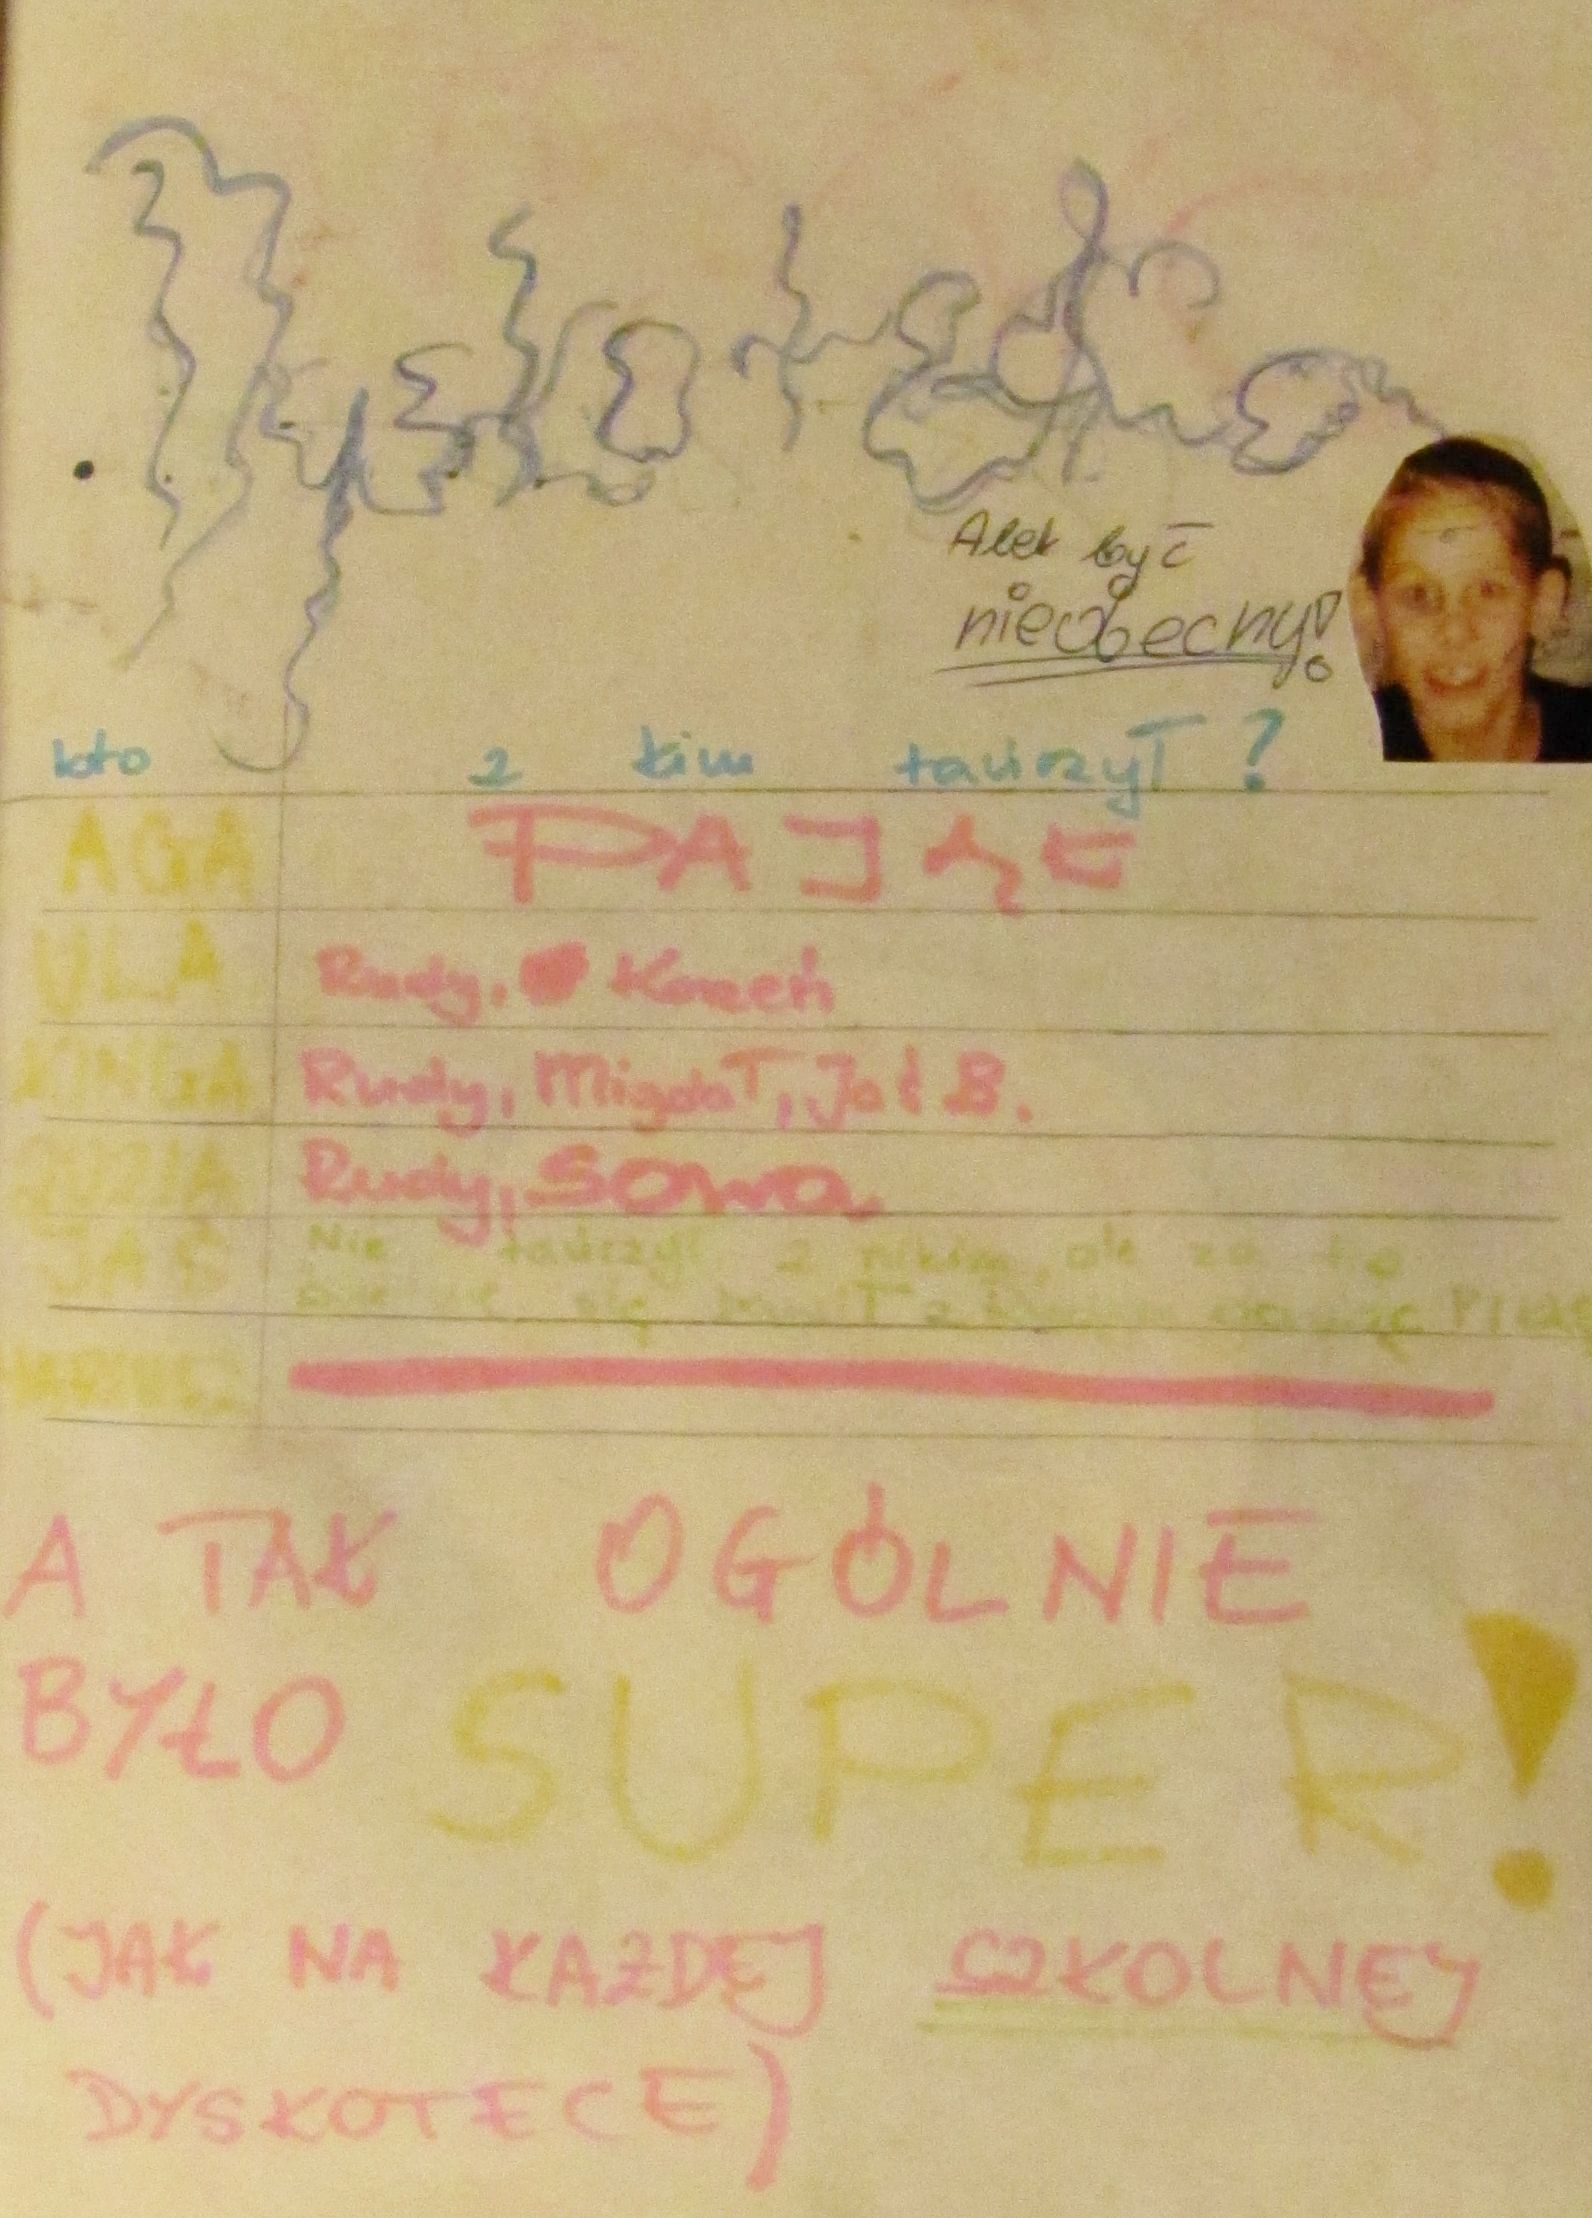 Dyskoteka
Alek być
nieobecny!
kto z kim tańczył?
AGA PAJĄK
ULA Rudy, Korzeń
KINGA Rudy, Migdał, Jaś B.
Rudy, Sowa
JAŚ Nie tańczył z nikim, ale za to
się z
A TAK OGÓLNIE
BYŁO SUPER!
(JAK NA KAŻDEJ SZKOLNEJ
DYSKOTECE)